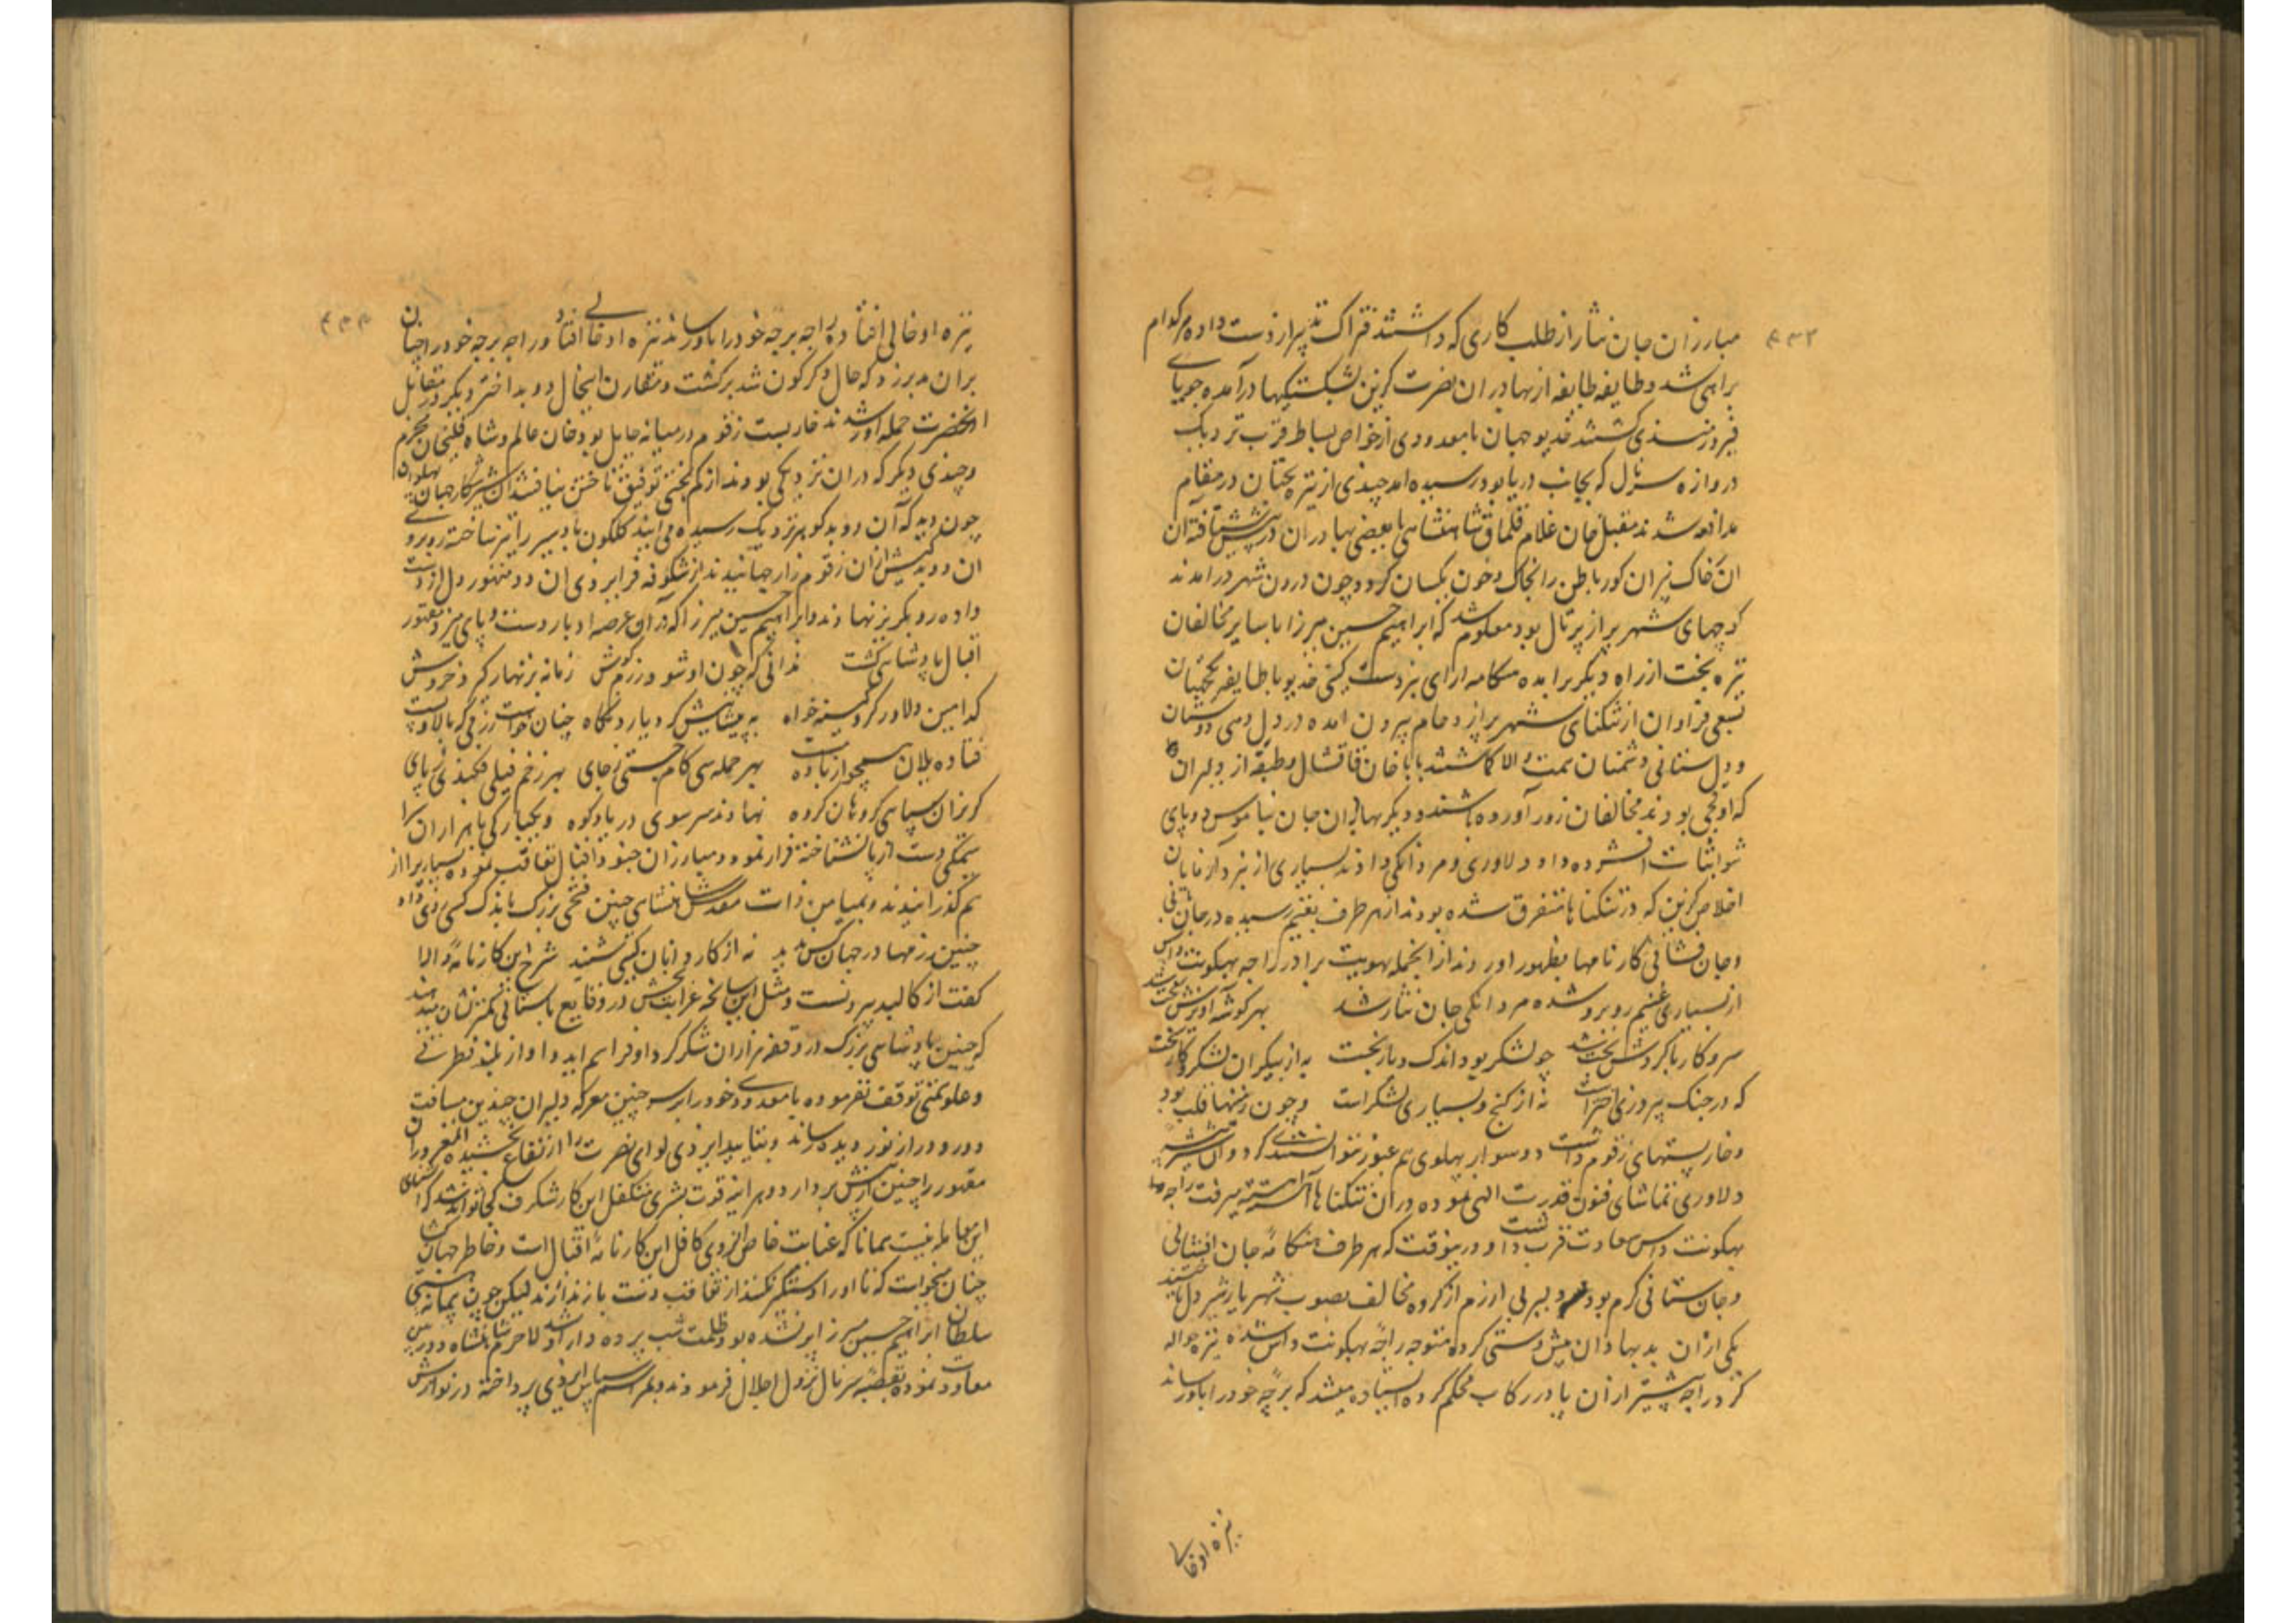 ۴۳۲
مبارزان جان نثار از طلب کاری که داشتند فتراک تدبیر از دست داده هر کدام
براهی شد و طایفه طایفه از بهادران نصرت کزین بشکستیکها درآمده جویای
فیروزمندی کشتند خدیو جهان با معدودی از خواص بساط قرب نزدیک
دروازه سرنال که بجانب دریا بود رسیده اند چندی از تیره بختان در مقام
مدافعه شدند مقبل خان غلام قلماق شاهنشاهی با بعضی بهادران در پیش شتافته آن
ان خاک تیران کور باطن را بخاک و خون یکسان کرد و چون درون شهر درآمدند
کوچهای شهر پر از پرتال بود معلوم شد که ابراهیم حسین میرزا با سایر مخالفان
تیره بخت از راه دیگر برآمده هنکامه آرای نبرد است کیتی خدیو با طایفه یکجهتان
بسعی فراوان از تنکنای شهر پر ازدحام بیرون آمده در دل دهی دوستان
و دل ستانی دشمنان همت والا کماشتند بابا خان قاقشال و طبقه از دلیران
که اوقچی بودند مخالفان زور آورده داشتند و دیگر بهادران جان بناموس ده پای
ثبات افشرده داد دلاوری و مردانکی دادند بسیاری از نبرد آزمایان
اخلاص کزین که در تنکناها متفرق شده بودند از هر طرف بغنیم رسیده در جان ستانی
و جان فشانی کارنامها بظهور آوردند از انجمله بهوپت برادر راجه بهکونت داس
از بسیاری غنیم روبرو شده مردانکی جان نثار شد بهر کوشه آویزش سخت شد
سر و کار با کردش بخت شد چو لشکر بود اندک و یار بخت به از بیکران لشکر و کار سخت
که در جنک پیروزی اختر است نه از کنج و بسیاری لشکر است و چون زمینها قلب بود
و خاربستهای زقوم داشت دو سوار پهلوی هم عبور نتوانستندی کرد و آن شیر بیشه
دلاوری تماشای فنون قدرت الهی نموده دران تنکناها آهسته آهسته میرفت راجه
بهکونت داس سعادت قرب داشت و درینوقت که هر طرف هنکامه جان افشانی
و جان ستانی کرم بود سه دلیر بی آزرم از کروه مخالف بصوب شهریار شیر دل تاختند
یکی ازان بدنهادان پیش دستی کرده متوجه راجه بهکونت داس شده نیزه حواله
کرد راجه پیشتر ازان پا در رکاب محکم کرده ایستاده میشد که برچه خود را باو رساند
نیزه او خالی
۴۳۳
نیزه او خالی افتاد و راجه برچه خود را باو رساند نیزه او خالی افتاد و راجه برچه خود را چنان
بران مدبر زد که حال دگرگون شد برکشت و مقارن اینحال دو بد اختر دیکر در مقابل
آنحضرت حمله آور شدند خاربست زقوم در میانه حایل بود خان عالم و شاه قلیخان محرم
و چندی دیگر که دران نزدیکی بودند از کم بختی توفیق تاختن نیافتند آن شیر شکار جهان پهلوان
چون دید که آن دو بد کوهر نزدیک رسیده می آیند کلکون بادسیر را تیز ساخته روبروی
ان دو بدکیش ازان زقوم زار جهانیدند از شکوه فر ایزدی ان دو مقهور دل از دست
داده رو بکریز نهادند و ابراهیم حسین میرزا که دران عرصه ادبار دست و پای میزد مقهور
اقبال پادشاهی کشت ندانی که چون او شود رزم کوش زمانه بزنهار کیرد خروش
کدامین دلاور کرد کینه خواه به پیشانیش کرد یارد نکاه چنان خواست رزمی که بالا و پست
فتاده یلان همچو از باده مست بهر حمله سی کام جستی ز جای بهر زخم فیلی فکندی ز پای
کریزان سپاهی کروهان کروه نهادند سر سوی دریا و کوه و یکبارکی با هزاران سرا
سیمکی دست از پا نشناخته فرار نمود و مبارزان جنود اقبال تعاقب نموده بسیاریرا از
هم کذرانیدند و بمیامن ذات مقدس شاهنشاهی چنین فتحی بزرک باندک کسی روی داد
چنین رزمها در جهان کس ندید نه از کاردانان کیتی شنید شرح این کارنامه والا
کفت از کالبد بیرونست و مثل این سانحه غرابت بخش در وقایع باستانی کمتر نشان میدهند
که چنین پادشاهی بزرک در وقتی هزاران لشکر کرد او فراهم آید و او از بلند فطرتی
و علو همتی توقف نفرموده با معدودی خود را بر سر چنین معرکه دلیران چندین مسافت
دور و دراز نور دیده رساند و بتایید ایزدی لوای نصرت را ارتفاع بخشیده آن مغروران
مقهور را چنین از پیش بردارد و هر اینه قوت بشری متکفل این کار شکرف کی تواند شد کرا کنجای
این معامله نیست همانا که عنایت خاص ایزدی کافل این کارنامه اقبال است و خاطر جهان کشا
چنان میخواست که تا او را دستکیر نکنند از تعاقب دست باز ندارند لیکن چون پیمانه هستی
سلطان ابراهیم حسین میرزا پر نشده بود ظلمت شب پرده دار او شد لاجرم شاهنشاه دوربین
معاودت نموده بقصبه سرنال نزول اجلال فرمودند و بمراسم سپاس ایزدی پرداخته در نوازش